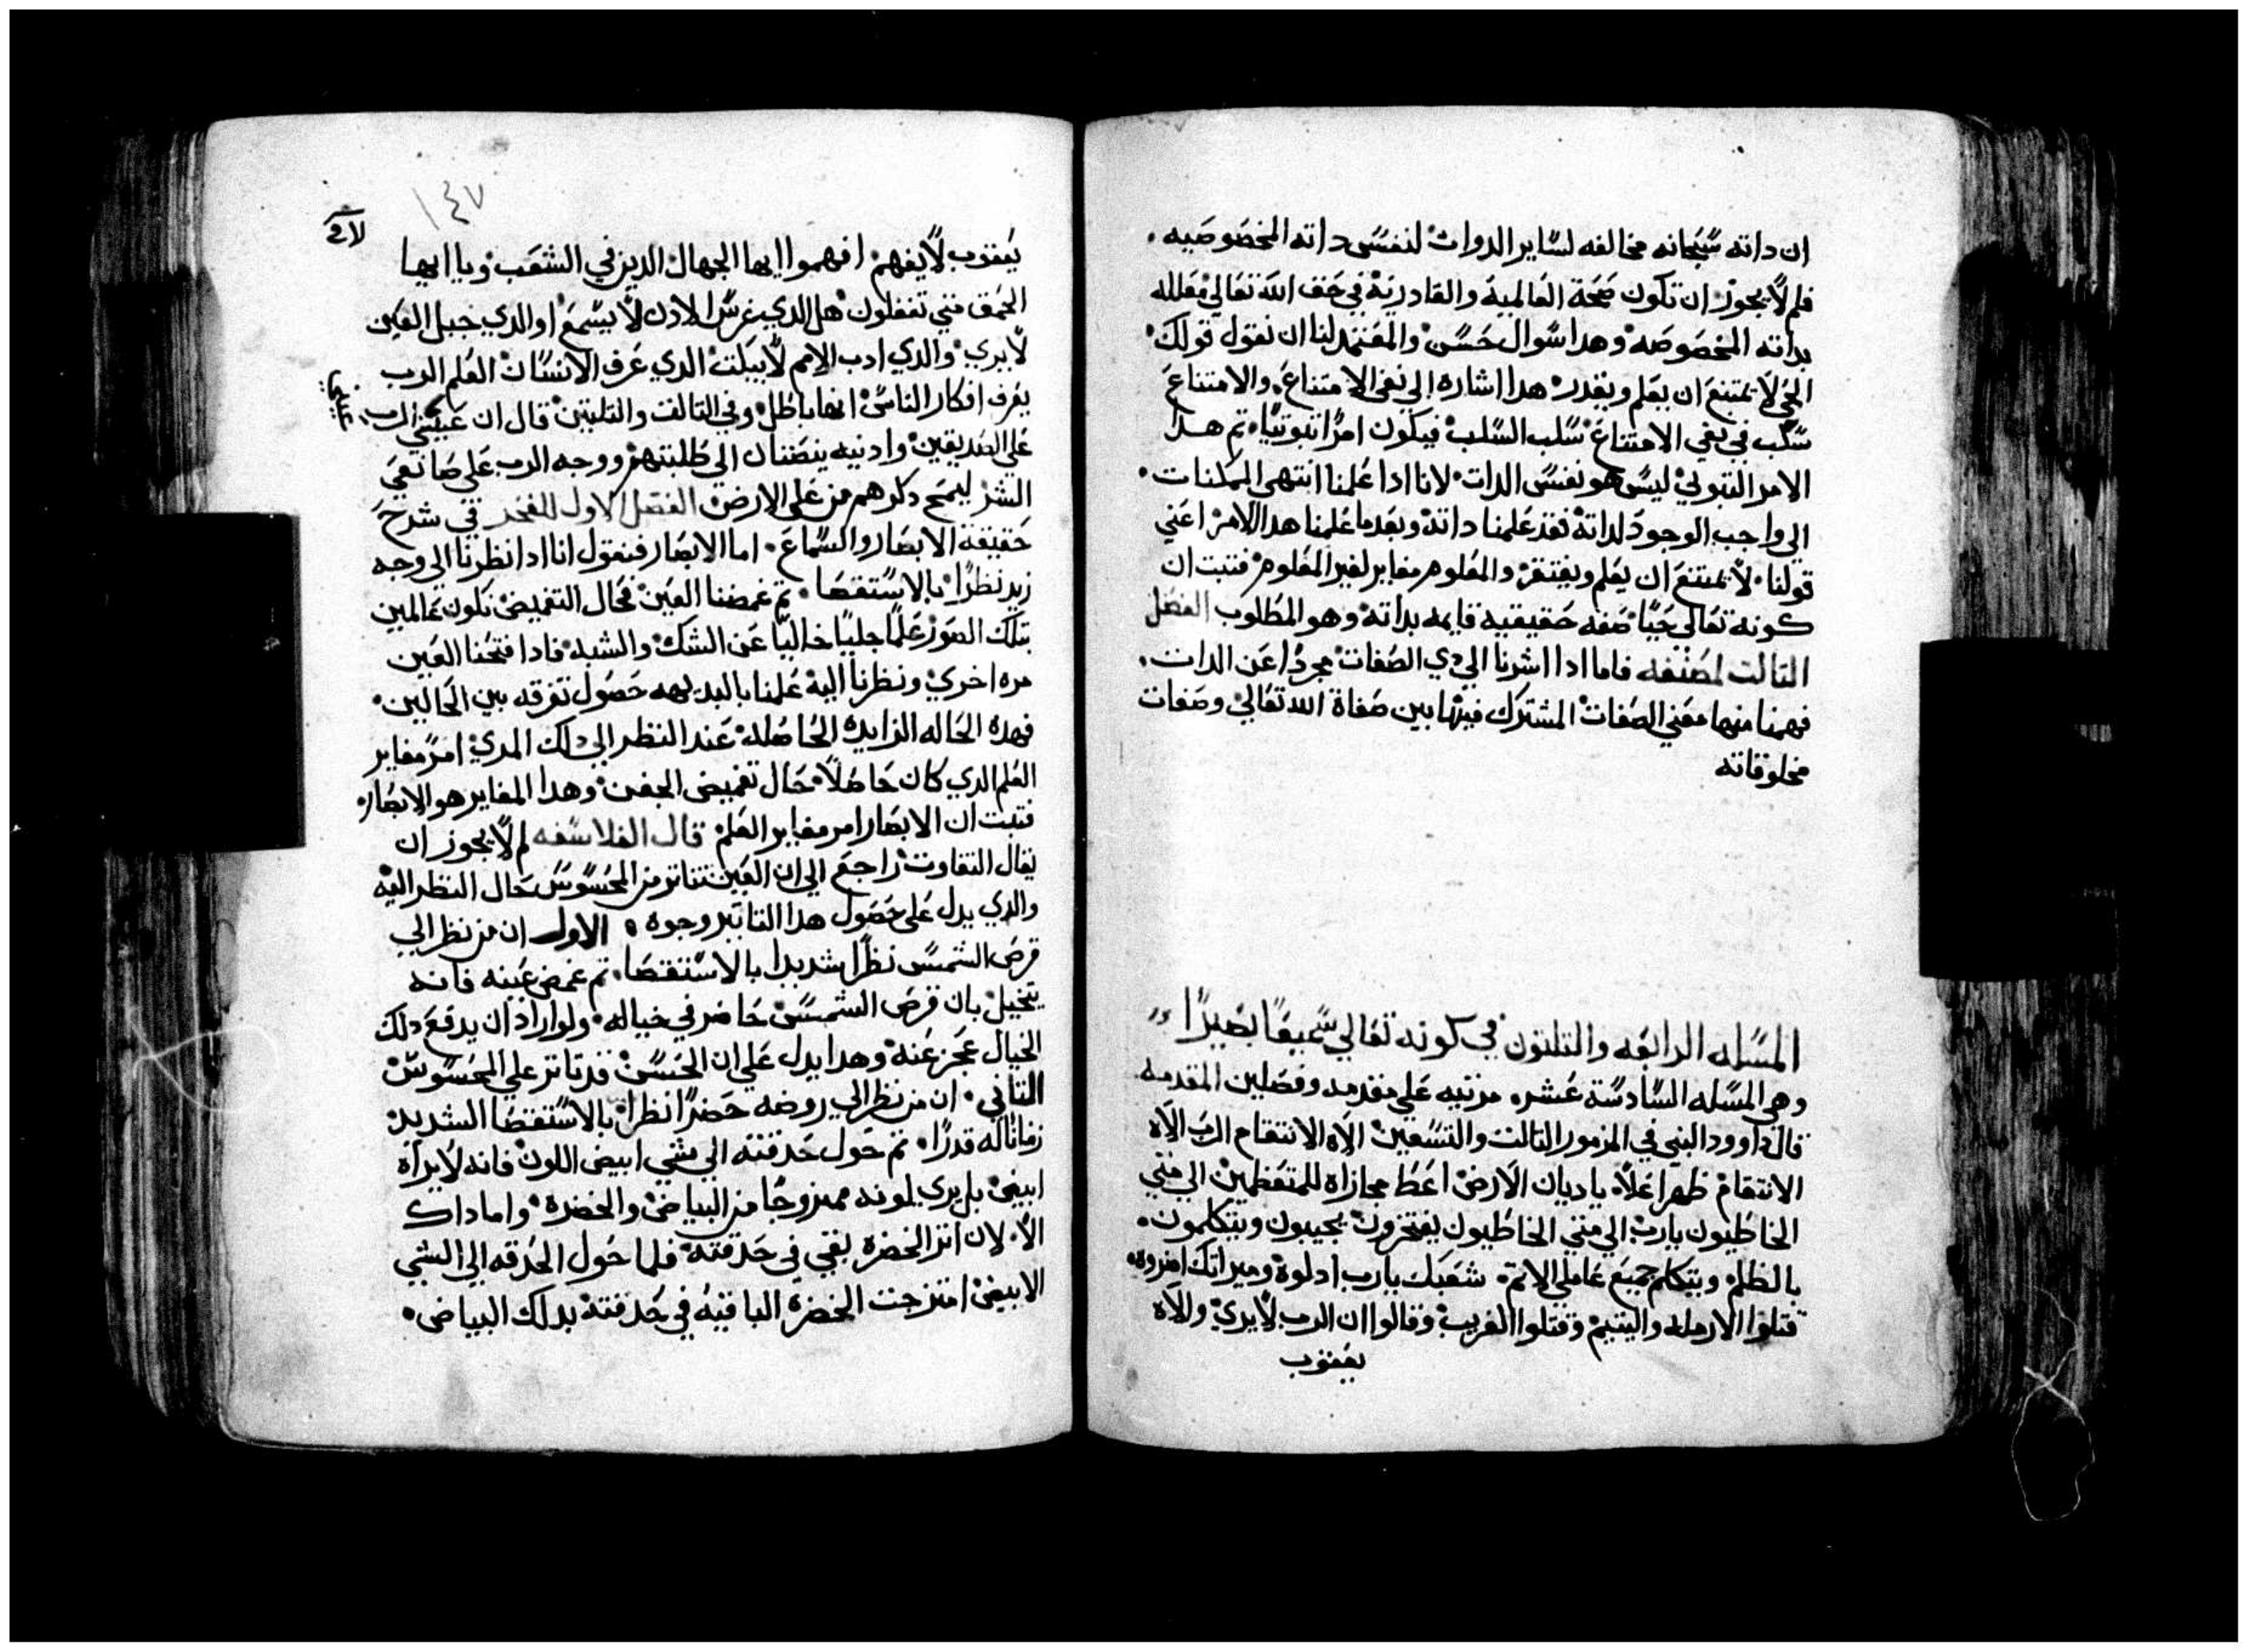 ان داته سبحانه مخالفه لساير الدوات لنفس داته المخصوصيه
فلم لا يجوز ان تكون صحة العالمية والقادرية في حق الله تعالي معلله
بداته المخصوصه وهدا سوال حسن والمعتمد لنا ان نقول قولك
الحي لا يمتنع ان يعلم ويقدر هدا اشاره الي نفي الامتناع والامتناع
سلب في نفي الامتناع سلب السلب فيكون امرا تبوتيا تم هدا
الامر التبوتي ليس هو نفس الدات لانا ادا علمنا انتهي الممكنات
الي واجب الوجود لداته فقد علمنا داته وبعد ما علمنا هدا الامر اعني
قولنا لا يمتنع ان يعلم ويقدر والمعلوم مغاير لغير المعلوم فتبت ان
كونه تعالي حيا صفه حقيقيه قايمه بداته وهو المطلوب الفصل
التالت لمصنفه فاما ادا اشرنا الي دي الصفات مجردا عن الدات
فهمنا منها معني الصفات المشترك فيها بين صفاة الله تعالي وصفات
مخلوقاته
المسله الرابعه والتلتون في كونه تعالي سميعا بصيرا
وهي المسله السادسة عشره مرتبه علي مقدمه وفصلين المقدمه
قال داوود النبي في المزمور التالت والتسعين الاه الانتقام الرب الاه
الانتقام ظهر اعلا يا ديان الارض اعط مجازاه للمتعظمين الي متي
الخاطيون يارب الي متي الخاطيون يفتخرون يجيبون ويتكلمون
بالظلم ويتكلم جميع عاملي الاتم شعبك يارب ادلوه وميراتك اضروه
قتلوا الارمله واليتيم وقتلوا الغريب وقالوا ان الرب لا يري والاه
يعقوب
١٤٧
يعقوب لا يفهم افهموا ايها الجهال الدين في الشعب ويا ايها
الحمق متي تعقلون هل الدي غرس الادن لا يسمع او الدي جبل العين
لا يري والدي ادب الامم لا يبكت الدي عرف الانسان العلم الرب
يعرف افكار الناس انها باطل وفي التالت والتلتين قال ان عيني الرب
علي الصديقين وادنيه ينصتان الي طلبتهم ووجه الرب علي صانعي
الشر ليمح دكرهم من علي الارض الفصل الاول للفخر في شرح
حقيقة الابصار والسماع اما الابصار فنقول انا ادا نظرنا الي وجه
زيد نظرا بالاستقصا تم غمضنا العين فحال التغميض نكون عالمين
بتلك الصور علما جليا خاليا عن الشك والشبه فادا فتحنا العين
مره اخري ونظرنا اليه علمنا بالبديهه حصول تفرقه بين الحالين
فهده الحاله الزايده الحاصله عند النظر الي دلك المري امر مغاير
العلم الدي كان حاصلا حال تغميض الجفن وهدا المغاير هو الابصار
فتبت ان الابصار امر مغاير العلم قال الفلاسفه لم لا يجوز ان
يقال التفاوت راجع الي ان العين تتاتر من المحسوس حال النظر اليه
والدي يدل علي حصول هدا التاتير وجوه الاول ان من نظر الي
قرص الشمس نظرا شديدا بالاستقصا تم غمض عينه فانه
يتخيل بان قرص الشمس حاضر في خياله ولو اراد ان يدفع دلك
الخيال عجز عنه وهدا يدل علي ان الحسن قد تاتر علي المحسوس
التاني ان من نظر الي روضه خضرا نظرا بالاستقصا الشديد
زمانا له قدرا تم حول حدقته الي شي ابيض اللون فانه لا يراه
ابيض بل يري لونه ممزوجا من البياض والخضره واما داك
الا لان اتر الخضره بقي في حدقته فلما حول الحدقه الي الشي
الابيض امتزجت الخضره الباقيه في حدقته بدلك البياض